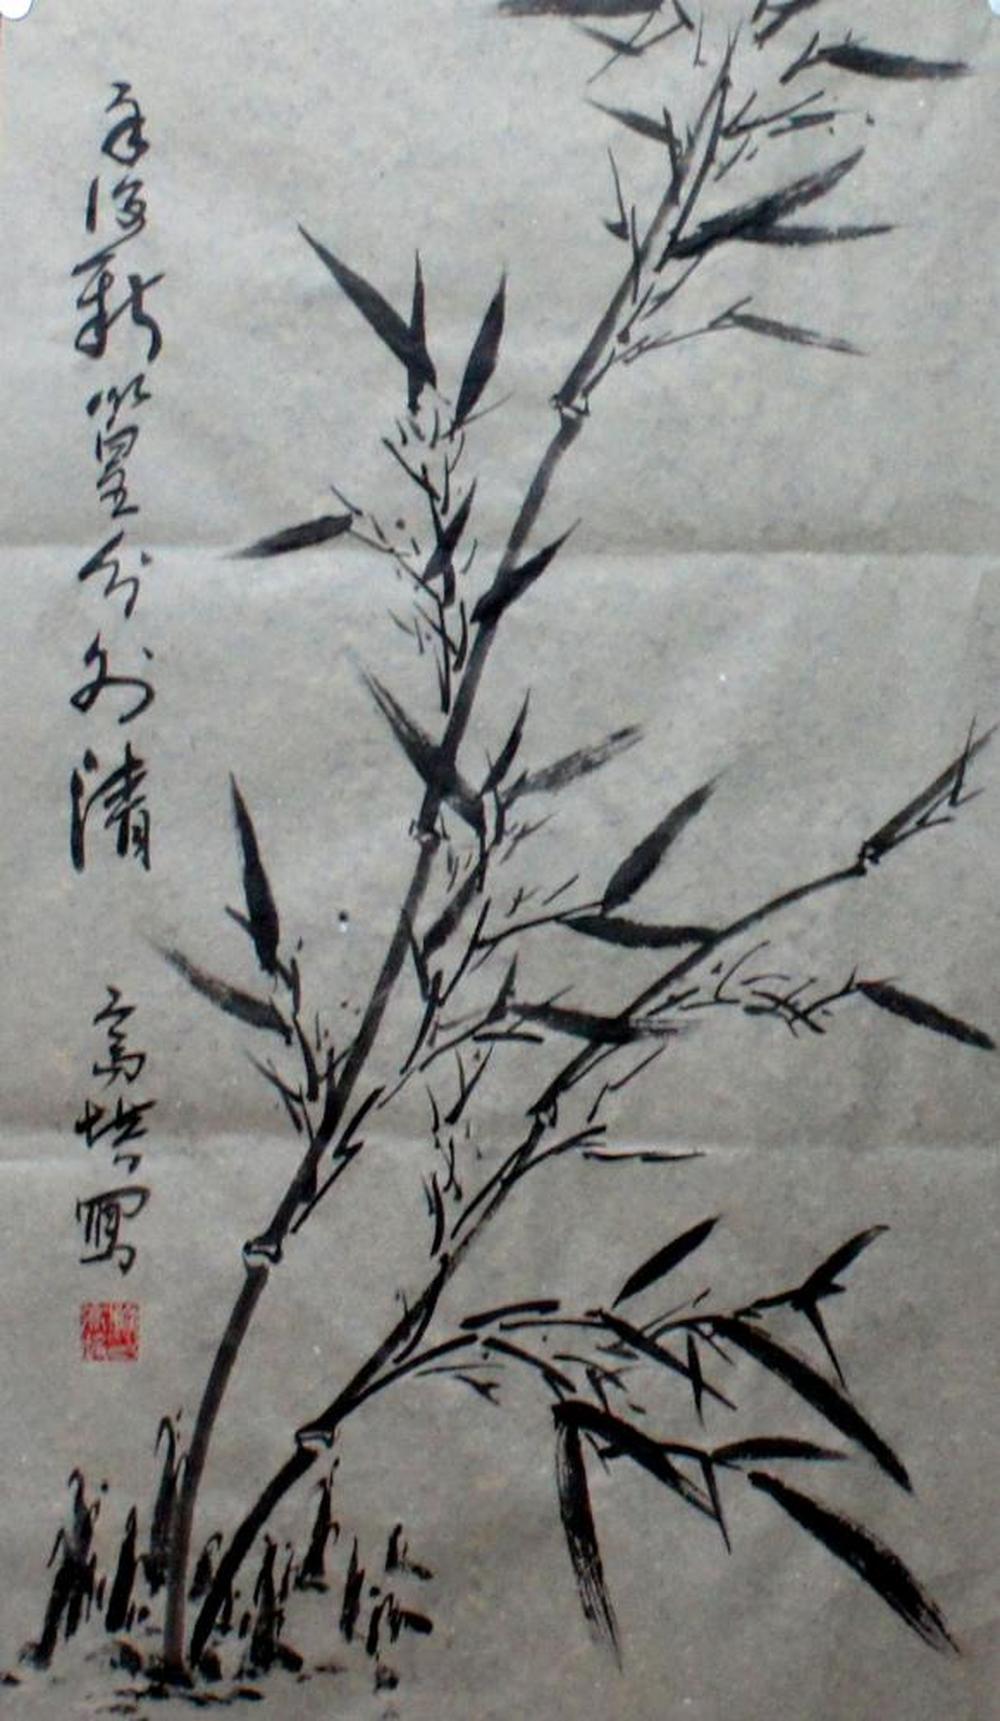 後新篁分外清
高寫